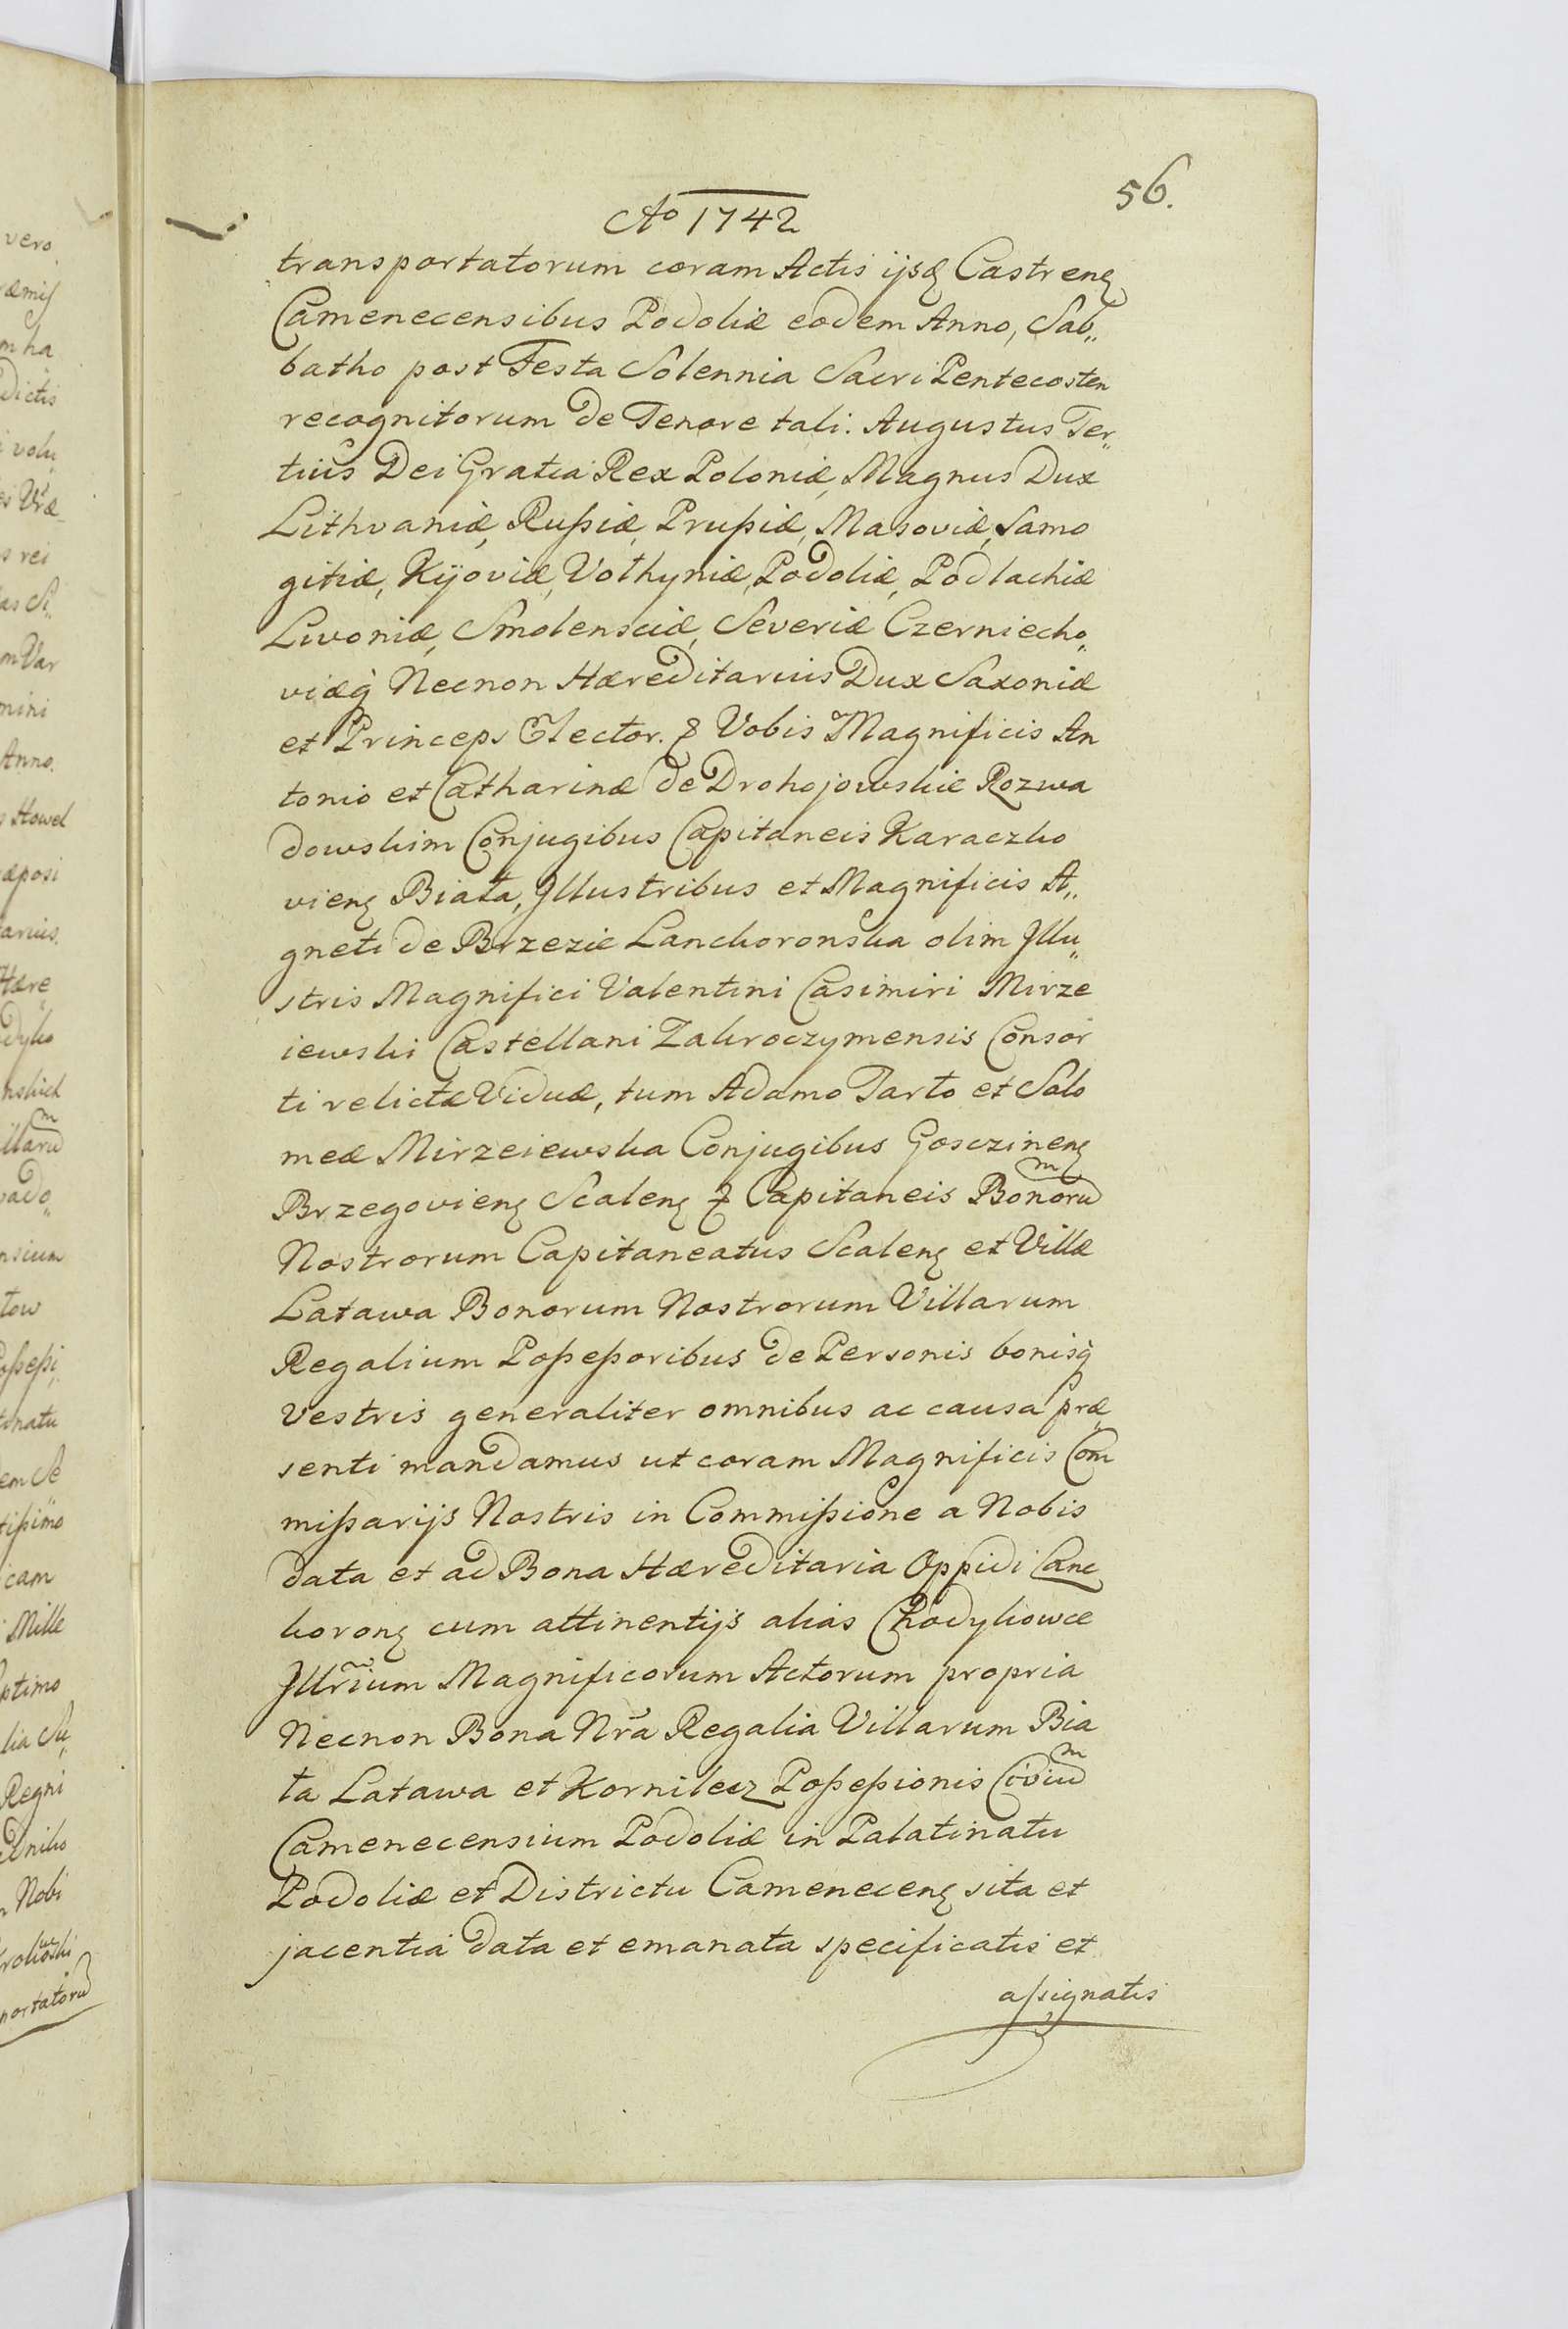 56.
Ao 1742
transportatorum coram Actis ijsđ Castrenȩ
Camenecensibus Podoliæ eodem Anno, Sab„
batho post Festa Solennia Sacri Pentecosten
recognitorum de Tenore tali. Augustus Ter„
tius Dei Gratia Rex Poloniæ, Magnus Dux
Lithvaniæ, Rußiæ, Prußiæ, Masoviæ, Samo
gitiæ, Kijoviæ, Volhyniæ, Podoliæ, Podlachiæ
Livoniæ, Smolensciæ, Severiæ Czerniecho„
viæq̀ Necnon Hæreditarius Dux Saxoniæ
et Princeps Elector. & Vobis Magnificis An
tonio et Catharinæ de Drohojowskie Rozwa
dowskim Conjugibus Capitaneis Karaczko
vienȩ Biała, Jllustribus et Magnificis A„
gneti de Brzezie Lanckoronska olim Jllu„
stris Magnifici Valentini Casimiri Mirze
iewski Castellani Zakroczymensis Consor
ti relictæ Viduæ, tum Adamo Tarło et Salo
meæ Mirzeiewska Conjugibus Gosczinenȩ
Brzegovienȩ Scalenȩ & Capitaneis Bonoru͠m
Nostrorum Capitaneatus Scalenȩ et Villæ
Latawa Bonorum Nostrorum Villarum
Regalium Poßeßoribus de Personis bonisq̀
vestris generaliter omnibus ac causa præ„
senti mandamus ut coram Magnificis Com
mißarijs Nostris in Commißione a Nobis
data et ad Bona Hæreditaria Oppidi Lanc„
koronȩ cum attinentijs alias Chodykowce
Jllr̃ium Magnificorum Actorum propria
Necnon Bona Nr̃a Regalia Villarum Bia
ła Latawa et Kornilecz Poßeßionis Civiu͠m
Camenecensium Podoliæ in Palatinatu
Podoliæ et Districtu Camenecenȩ sita et
jacentia data et emanata specificatis et
aßignatis